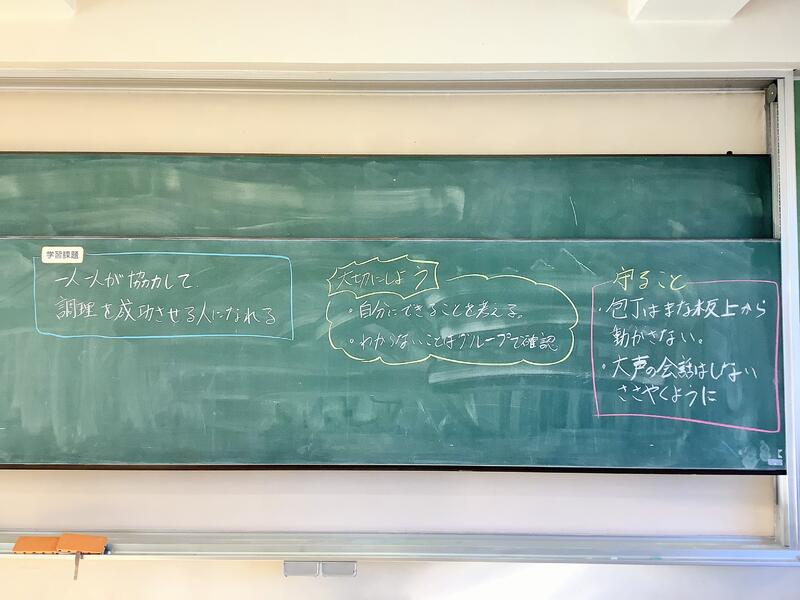 学習課題
一人一人が協力して、
調理を成功させる人になれる
大切にしよう
・自分にできることを考える。
・わからないことはグループで確認
守ること
・包丁はまな板上から
動かさない。
・大声の会話はしない
ささやくように